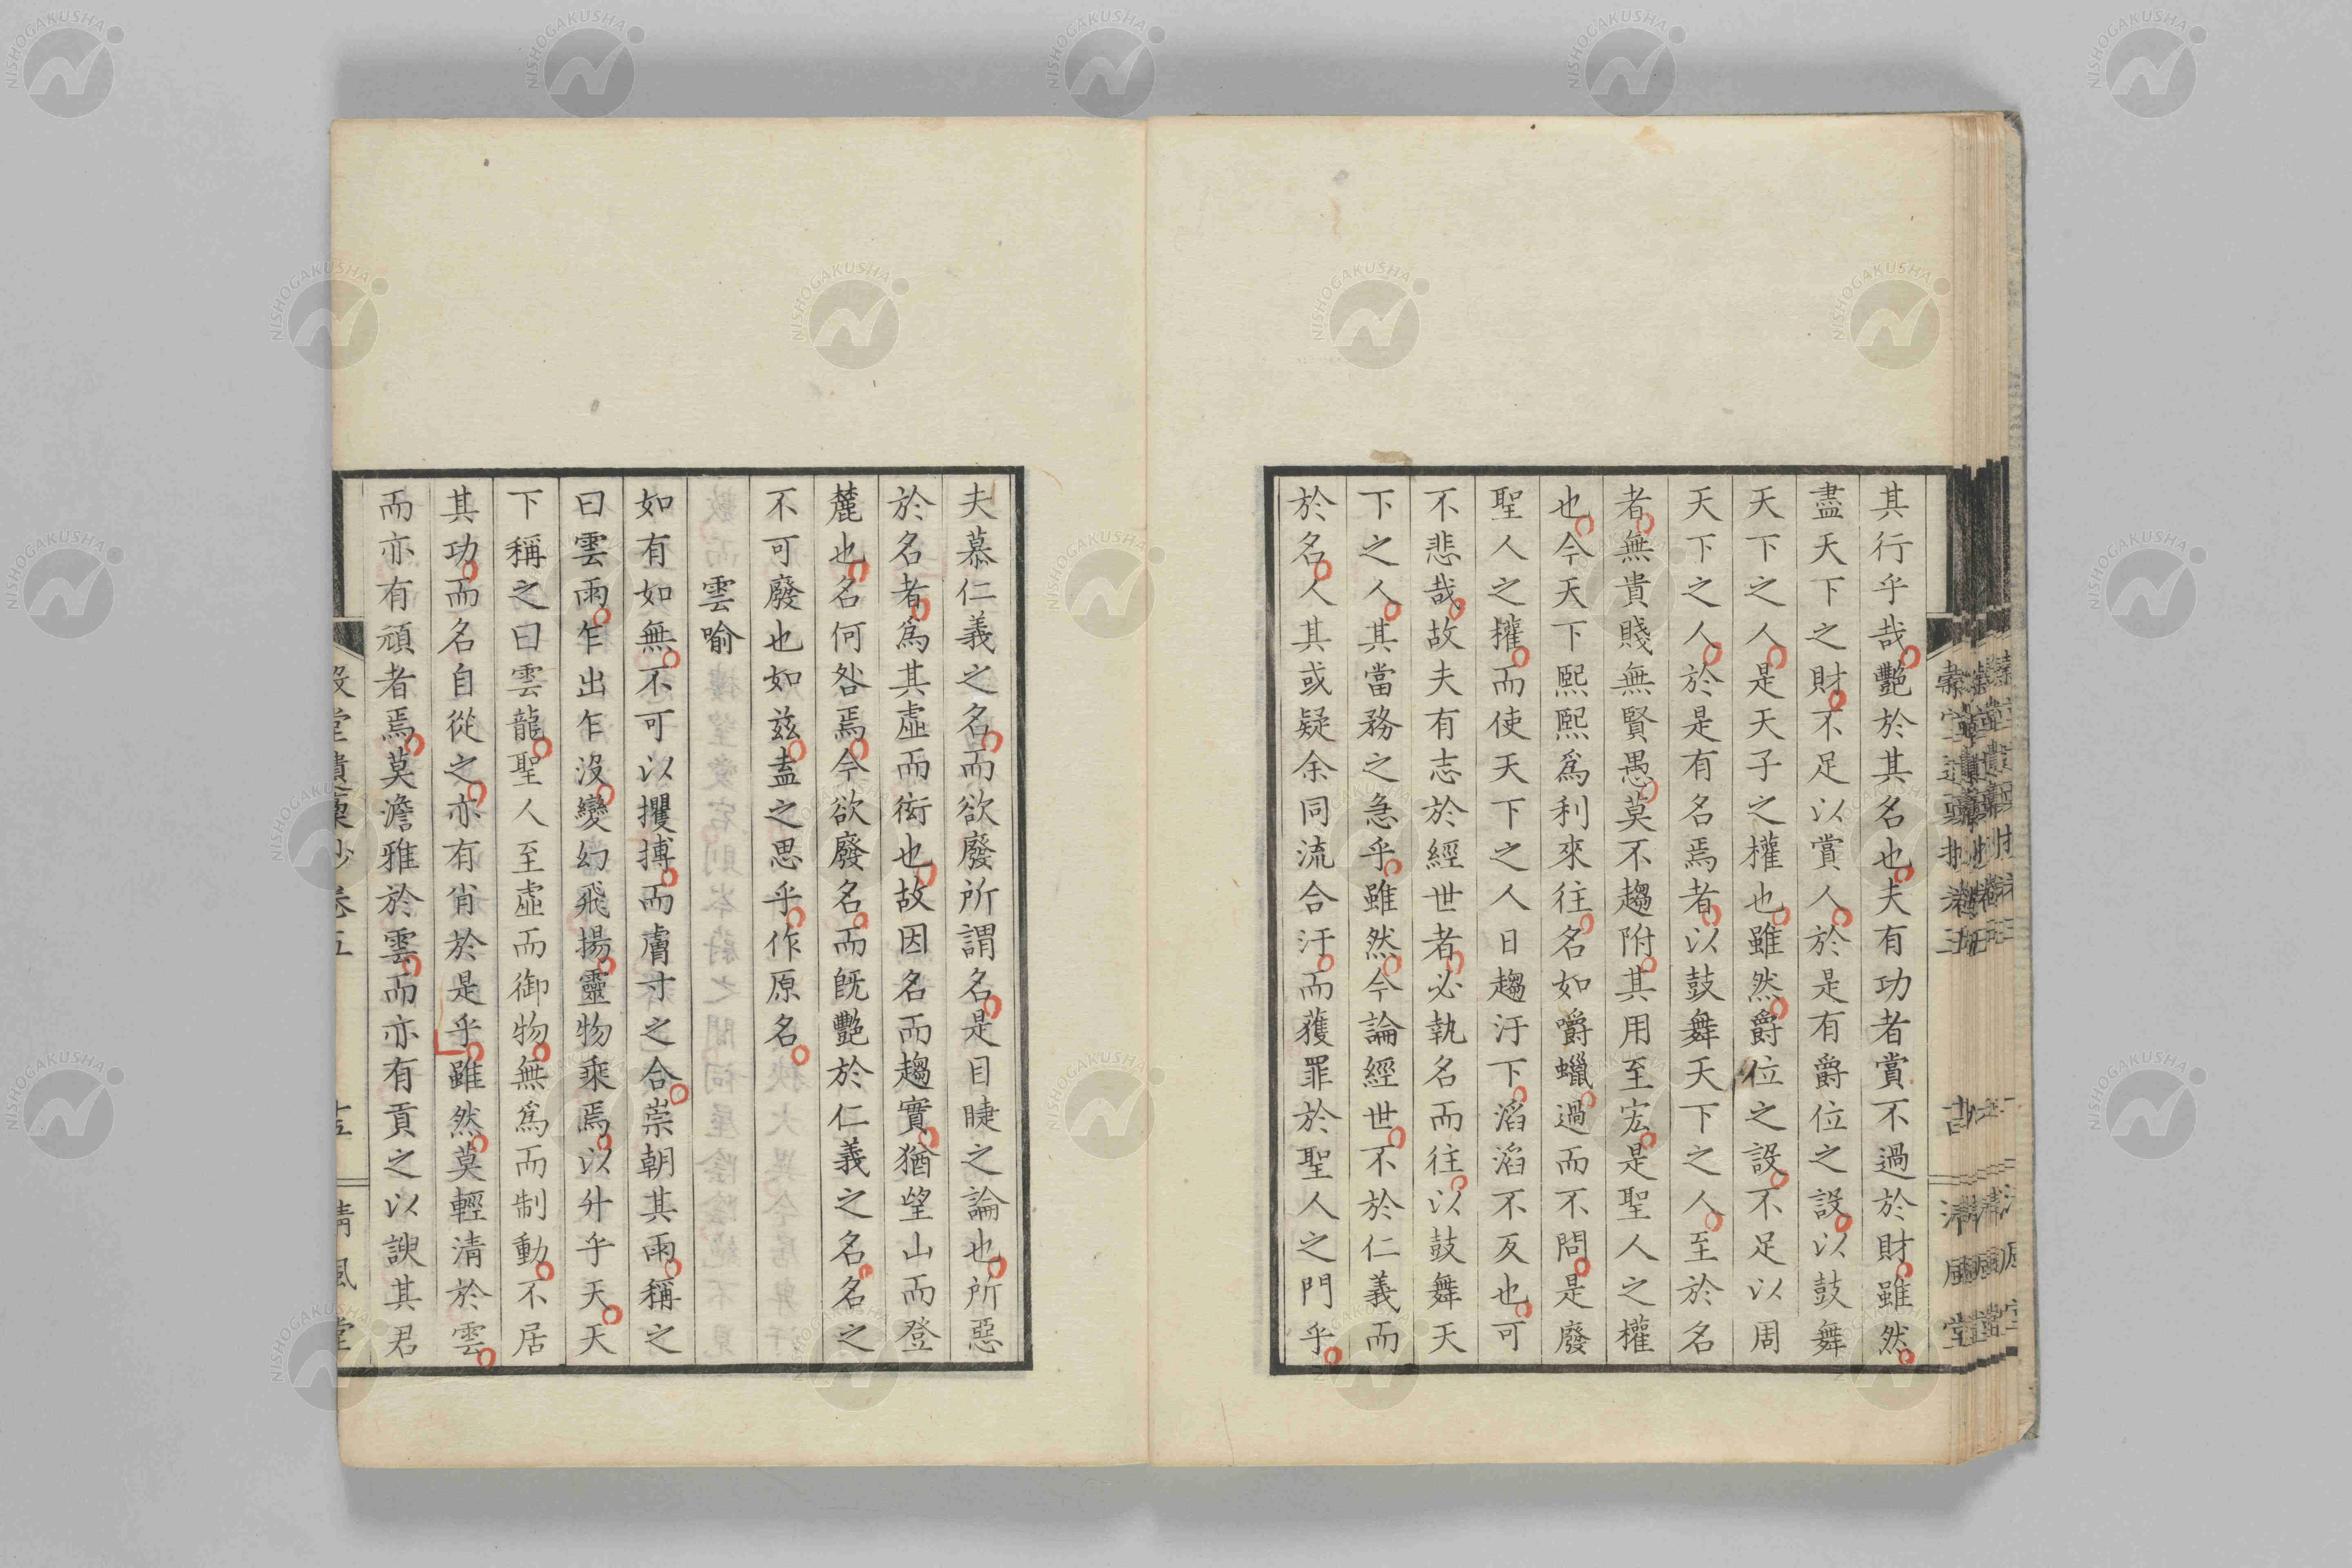 其行乎哉艷於其名也夫有功者賞不過於財雖然
盡天下之財不足以賞人於是有爵位之設以鼓舞
天下之人是天子之權也雖然爵位之設不足以周
天下之人於是有名焉者以鼓舞天下之人至於名
者無貴賤無賢愚莫不趨附其用至宏是聖人之權
也今天下熙熙爲利來往名如嚼蠟過而不問是廢
聖人之權而使天下之人日趨汙下滔滔不反也可
不悲哉故夫有志於經世者必執名而往以鼓舞天
下之人其當務之急乎雖然今論經世不於仁義而
於名人其或疑余同流合汙而獲罪於聖人之門乎
夫慕仁義之名而欲廢所謂名是目睫之論也所惡
於名者爲其虛而衒也故因名而趨實猶望山而登
麓也名何咎焉今欲廢名而旣艷於仁義之名名之
不可廢也如兹盍之思乎作原名
雲喻
如有如無不可以攫搏而膚寸之合崇朝其雨稱之
曰雲雨乍出乍沒變幻飛揚靈物乘焉以升乎天天
下稱之曰雲龍聖人至虛而御物無爲而制動不居
其功而名自從之亦有肖於是乎雖然莫輕清於雲
而亦有頑者焉莫澹雅於雲而亦有貢之以諛其君
堂遺稾抄卷五
十五
清風堂
NISHOGAKUSHA